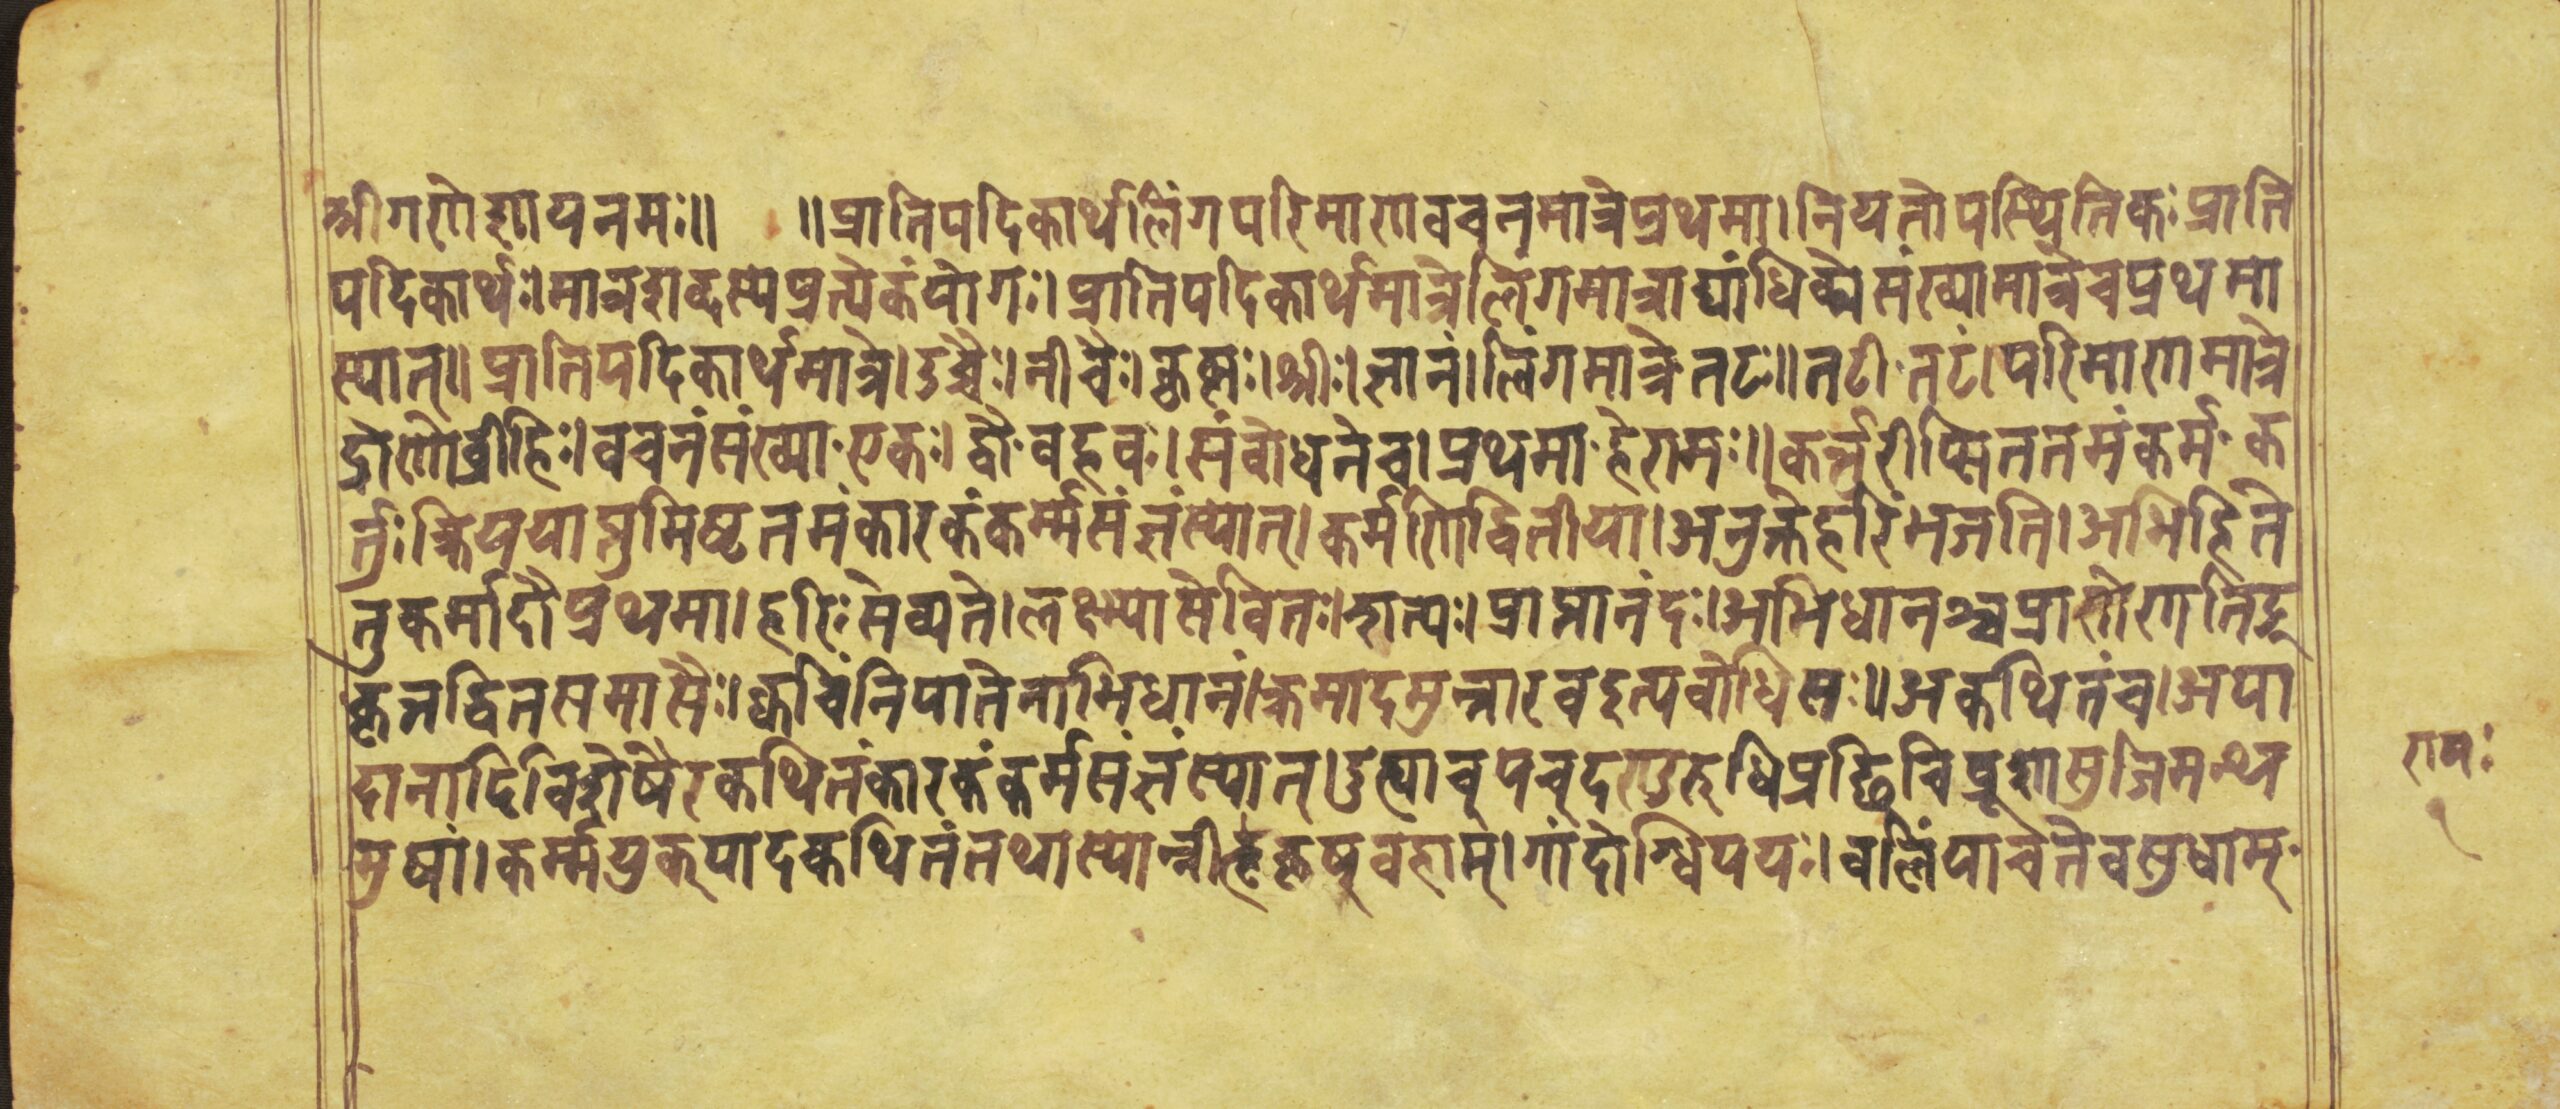 श्रीगणेशायनमः॥ ॥प्रातिपदिकार्थलिंगपरिमाणवचनमात्रेप्रथमा।नियतोपस्थितिकःप्राति
पदिकार्थः।मात्रशब्दस्यप्रत्येकंयोगः।प्रातिपदिकार्थमात्रेलिंगमात्राद्यांधिक्येसंख्यामात्रेचप्रथमा
स्यात्॥प्रातिपदिकार्थमात्रे।उच्चैः।नीचैः।कृष्णः।श्रीः।ज्ञानं।लिंगमात्रेतटः॥तटीतटं।परिमाणमात्रे
द्रोणोव्रीहिः।वचनंसंख्याएकः।द्वौवहवः।संवोधनेच।प्रथमाहेरामः॥कर्त्तुरीप्सिततमंकर्मक
र्त्तुःक्रिययाप्तुमिष्टतमंकारकंकर्म्मसंज्ञंस्यात्।कर्मणिद्वितीया।अनुक्तेहरिंभजति।अभिहिते
तुकर्मादौप्रथमा।हरिःसेव्यते।लक्ष्म्यासेवितः।शत्यः।प्राप्तानंदः।अभिधानञ्चप्रायेणतिङ्
कृत्तद्धितसमासैः।क्वचिंनिपातेनाभिधानं।क्रमादमुन्नारदइत्यवोधिसः॥अकथितंच।अपा
दानादिविशेषैरकथितंकारकंकर्मसंज्ञंस्यात्।दुह्याच्पच्दण्डरुधिप्रछिचिब्रूशासुजिमन्थ
मुषां।कर्म्मयुक्पादकथितंतथास्यान्नीहृकृष्वहाम्।गांदोग्धिपयः।वलिंयाचतेवसुधाम्
रामः